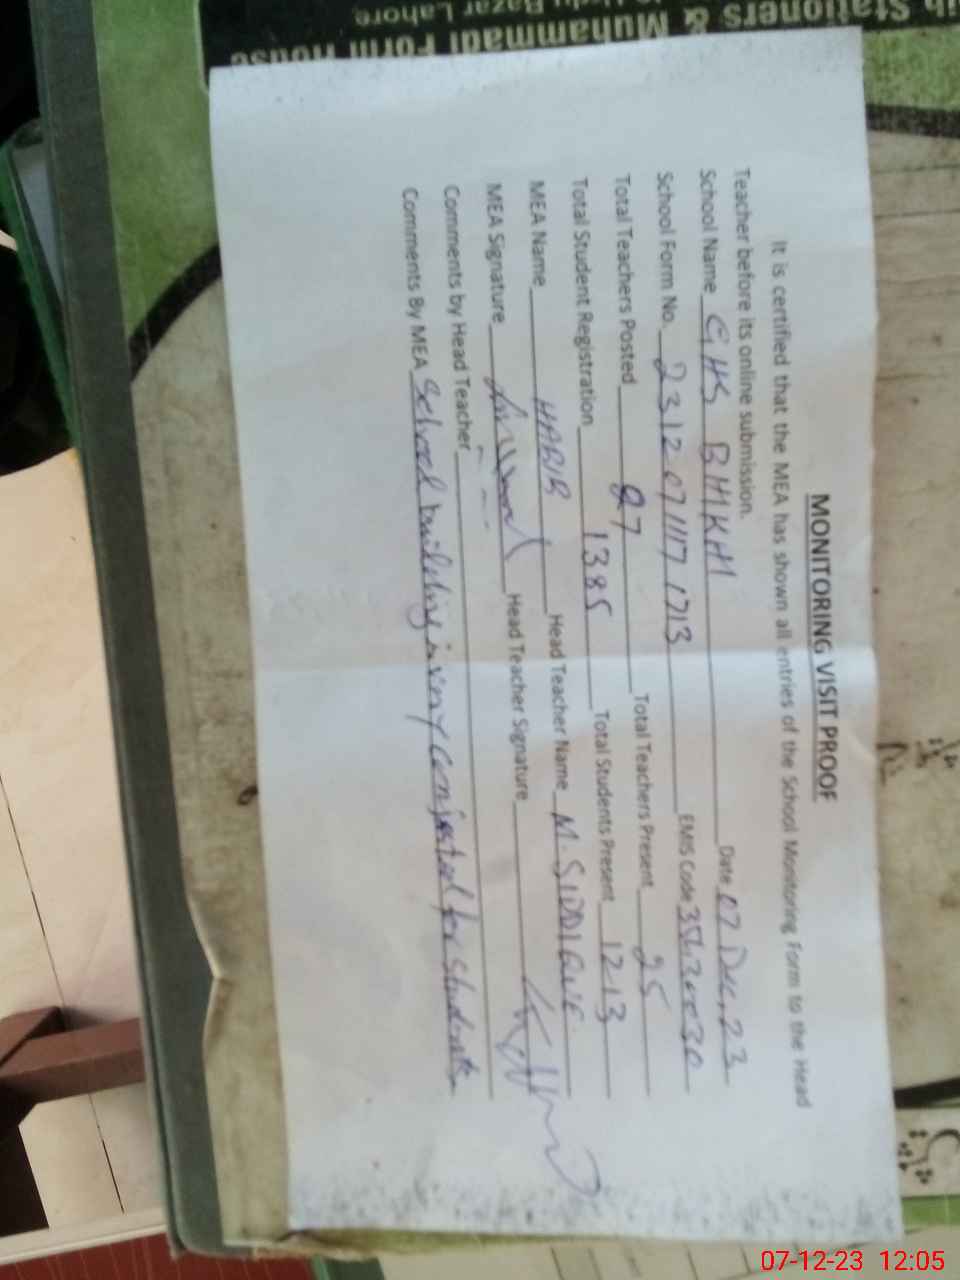 MONITORING VISIT PROOF
It is certified that the MEA has shown all entries of the School Monitoring Form to the Head
Teacher before its online submission.
School Name GHS BHKH Date 07 Dec, 23
School Form No. 231207111717 13 EMIS Code
Total Teachers Posted 27 Total Teachers Present 25
Total Student Registration 1385 Total Students Present 1213
MEA Name HABIB Head Teacher Name M. SIDDIQUE
MEA Signature Head Teacher Signature
Comments by Head Teacher
Comments By MEA School building is very conjested for students
Stationers & Muhammadi Form House
Bazar Lahore.
07-12-23 12:05